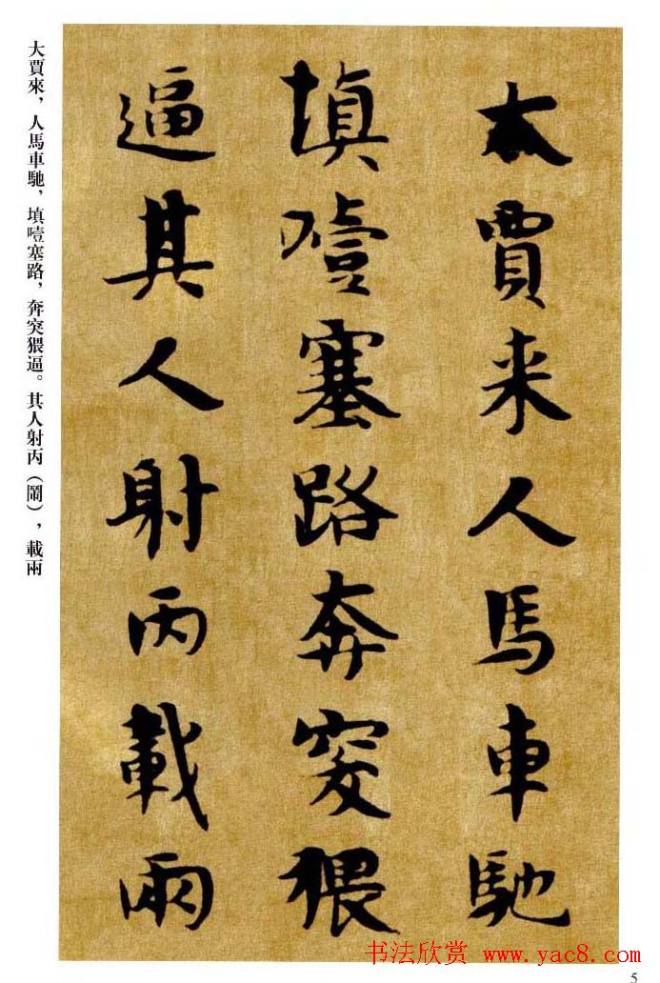 大賈来人馬車馳
填噎塞路奔突猥
逼其人射丙載兩
大賈來，人馬車馳，填噎塞路，奔突猥逼。其人射丙（鬧），載兩
书法欣赏 www.yac8.com
5